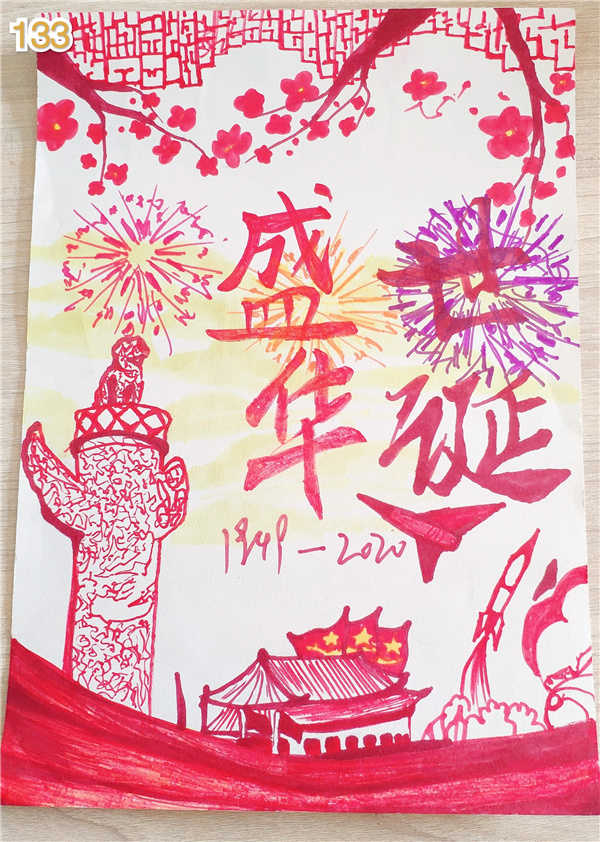 133
盛世
华诞
1949—2020